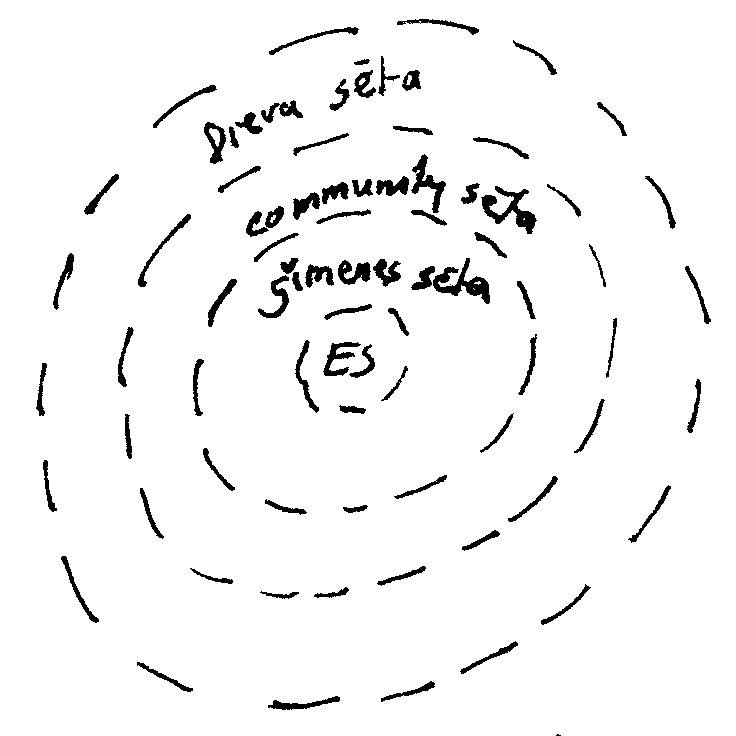 Dieva sēta
community sēta
ģimenes sēta
ES